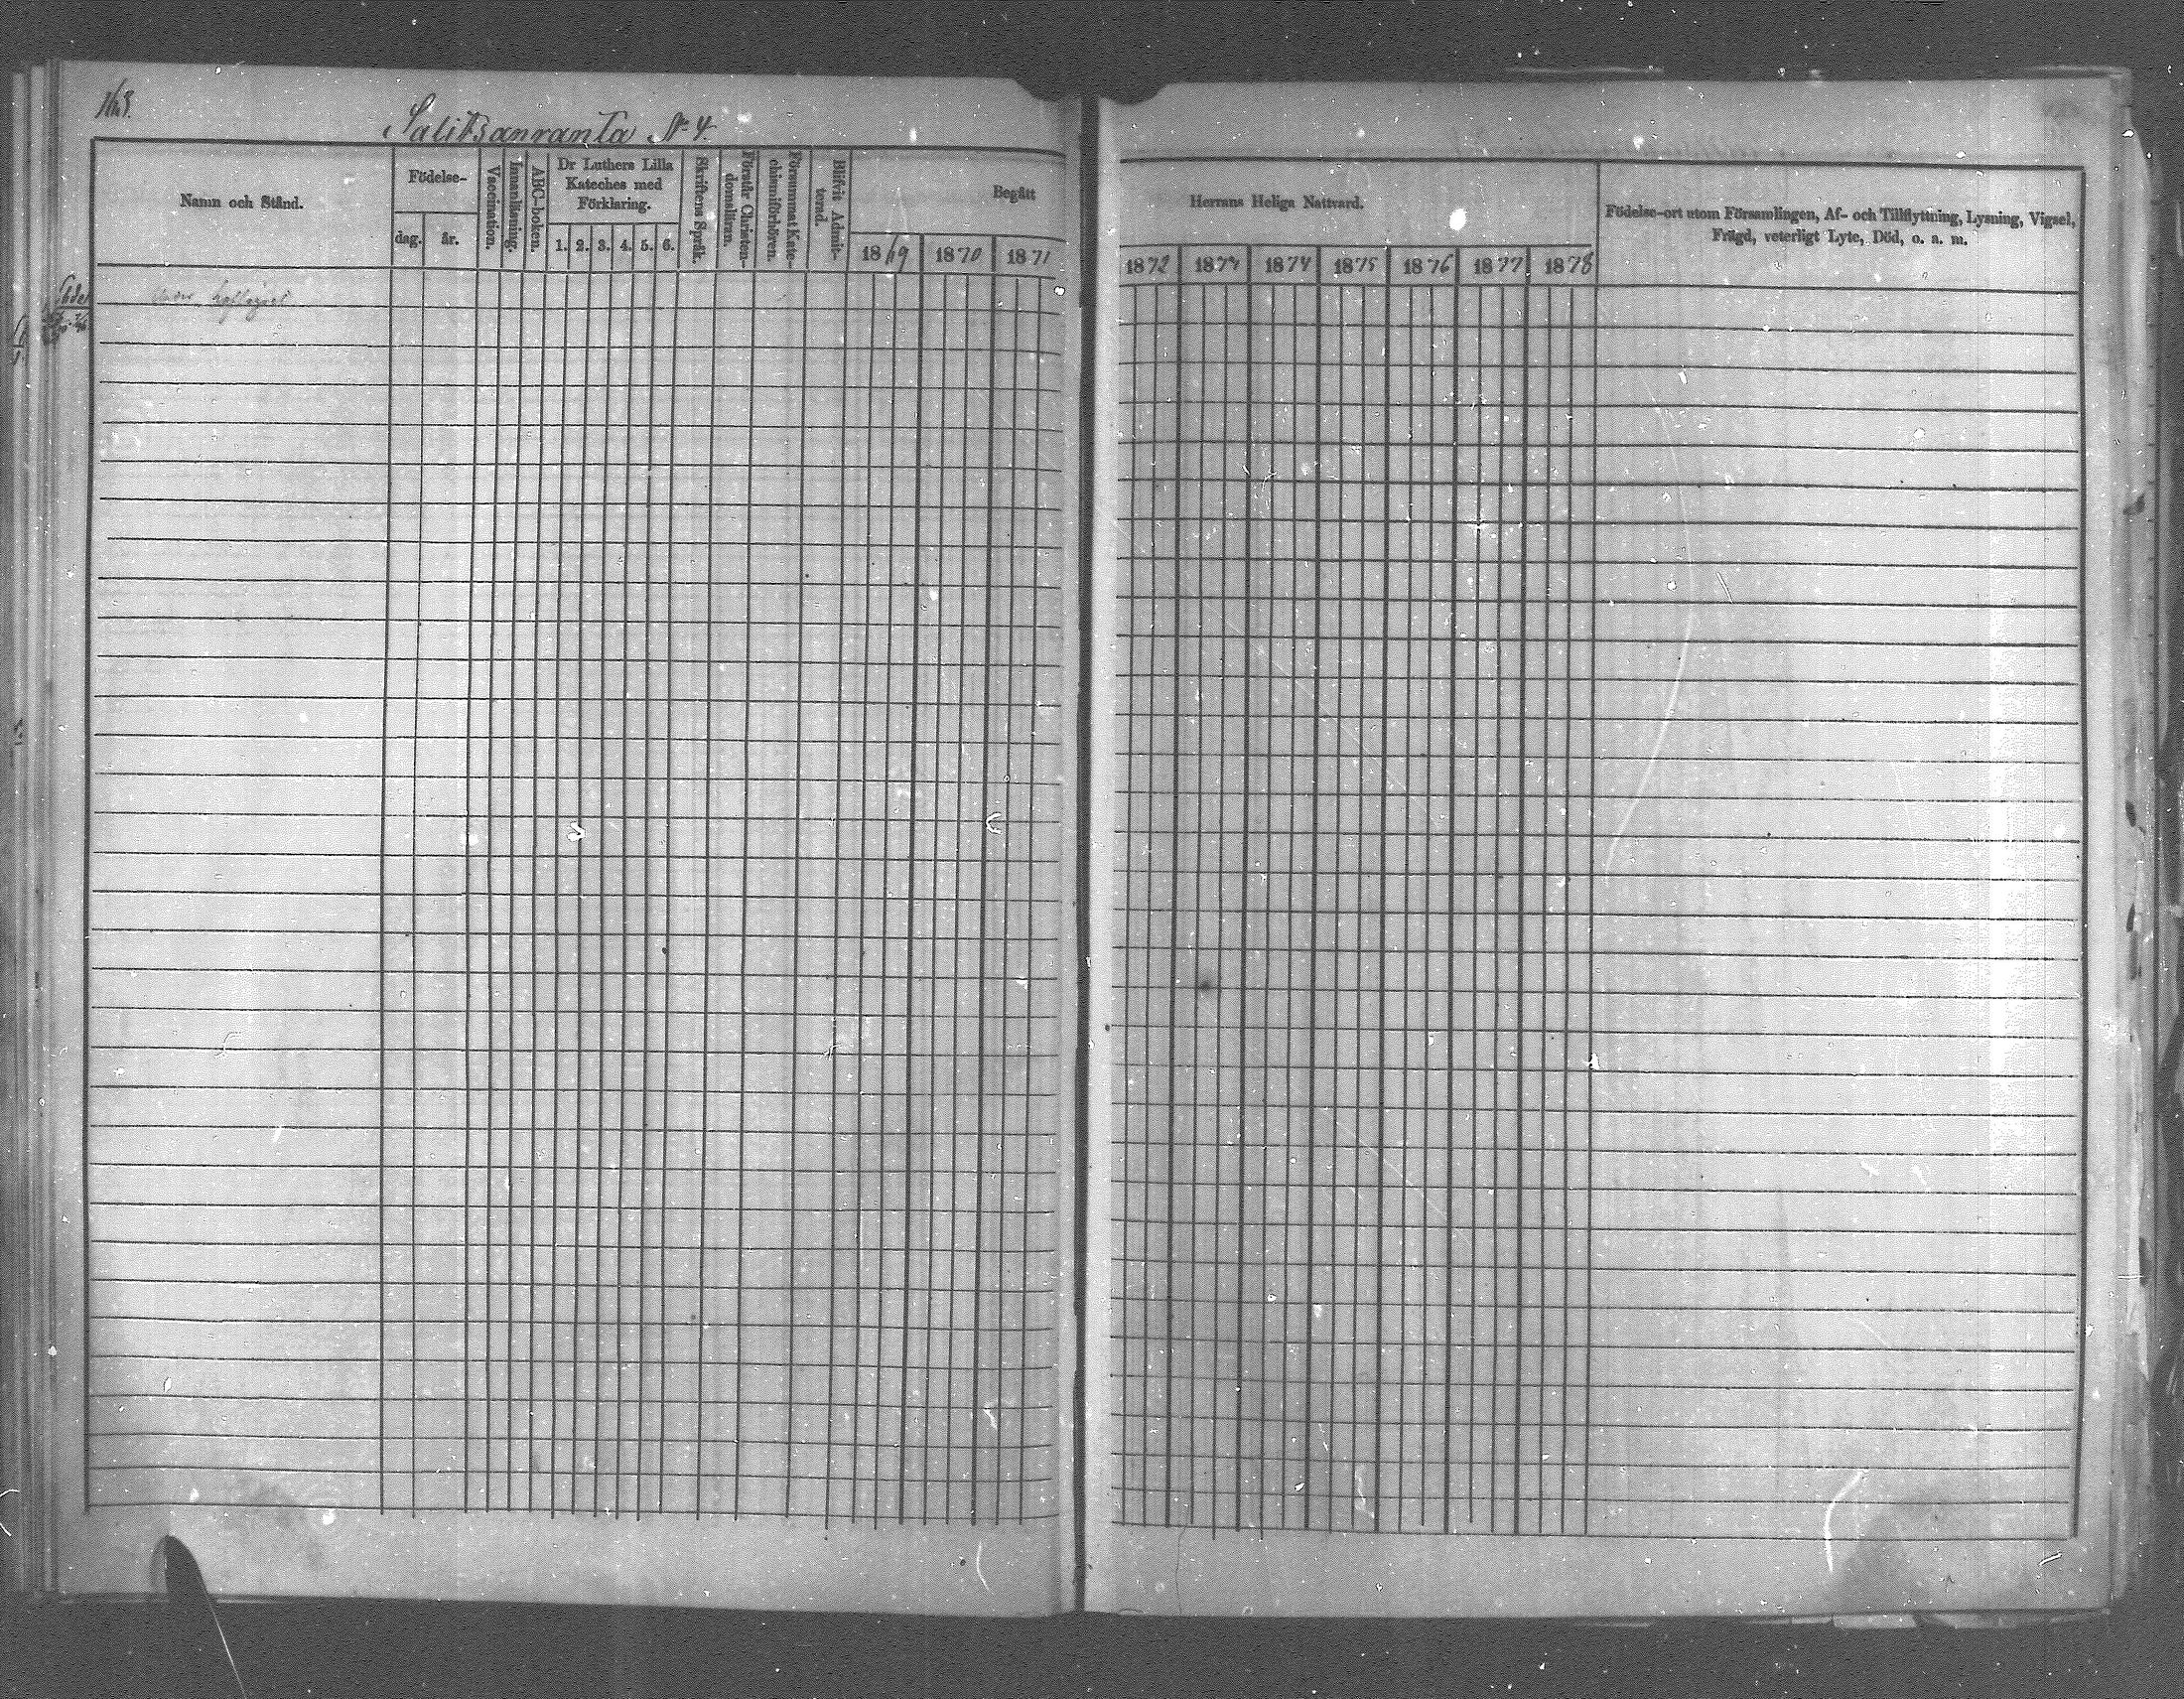 163.
Salitsanranta No 4.
Namn och Stånd.
Födelse-
dag.
år.
Vaccination.
Innanläsning.
ABC-boken.
Dr Luthers Lilla
Kateches med
Förklaring.
1. 2. 3. 4. 5. 6.
Skriftens Språk.
Förstår Christen-
domsläran.
Försummat Kate-
chismiförhören.
Blifvit Admit-
terad.
Begått
1869 1870 1871
Herrans Heliga Nattvard.
1872 1874 1875 1876 1877 1878
Födelse-ort utom Församlingen, Af- och Tillflyttning, Lysning, Vigsel,
Frägd, veterligt Lyte, Död, o. a. m.